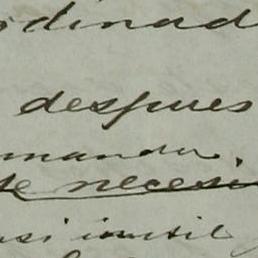 dinad
despues
mandar
te necesi
si inutil